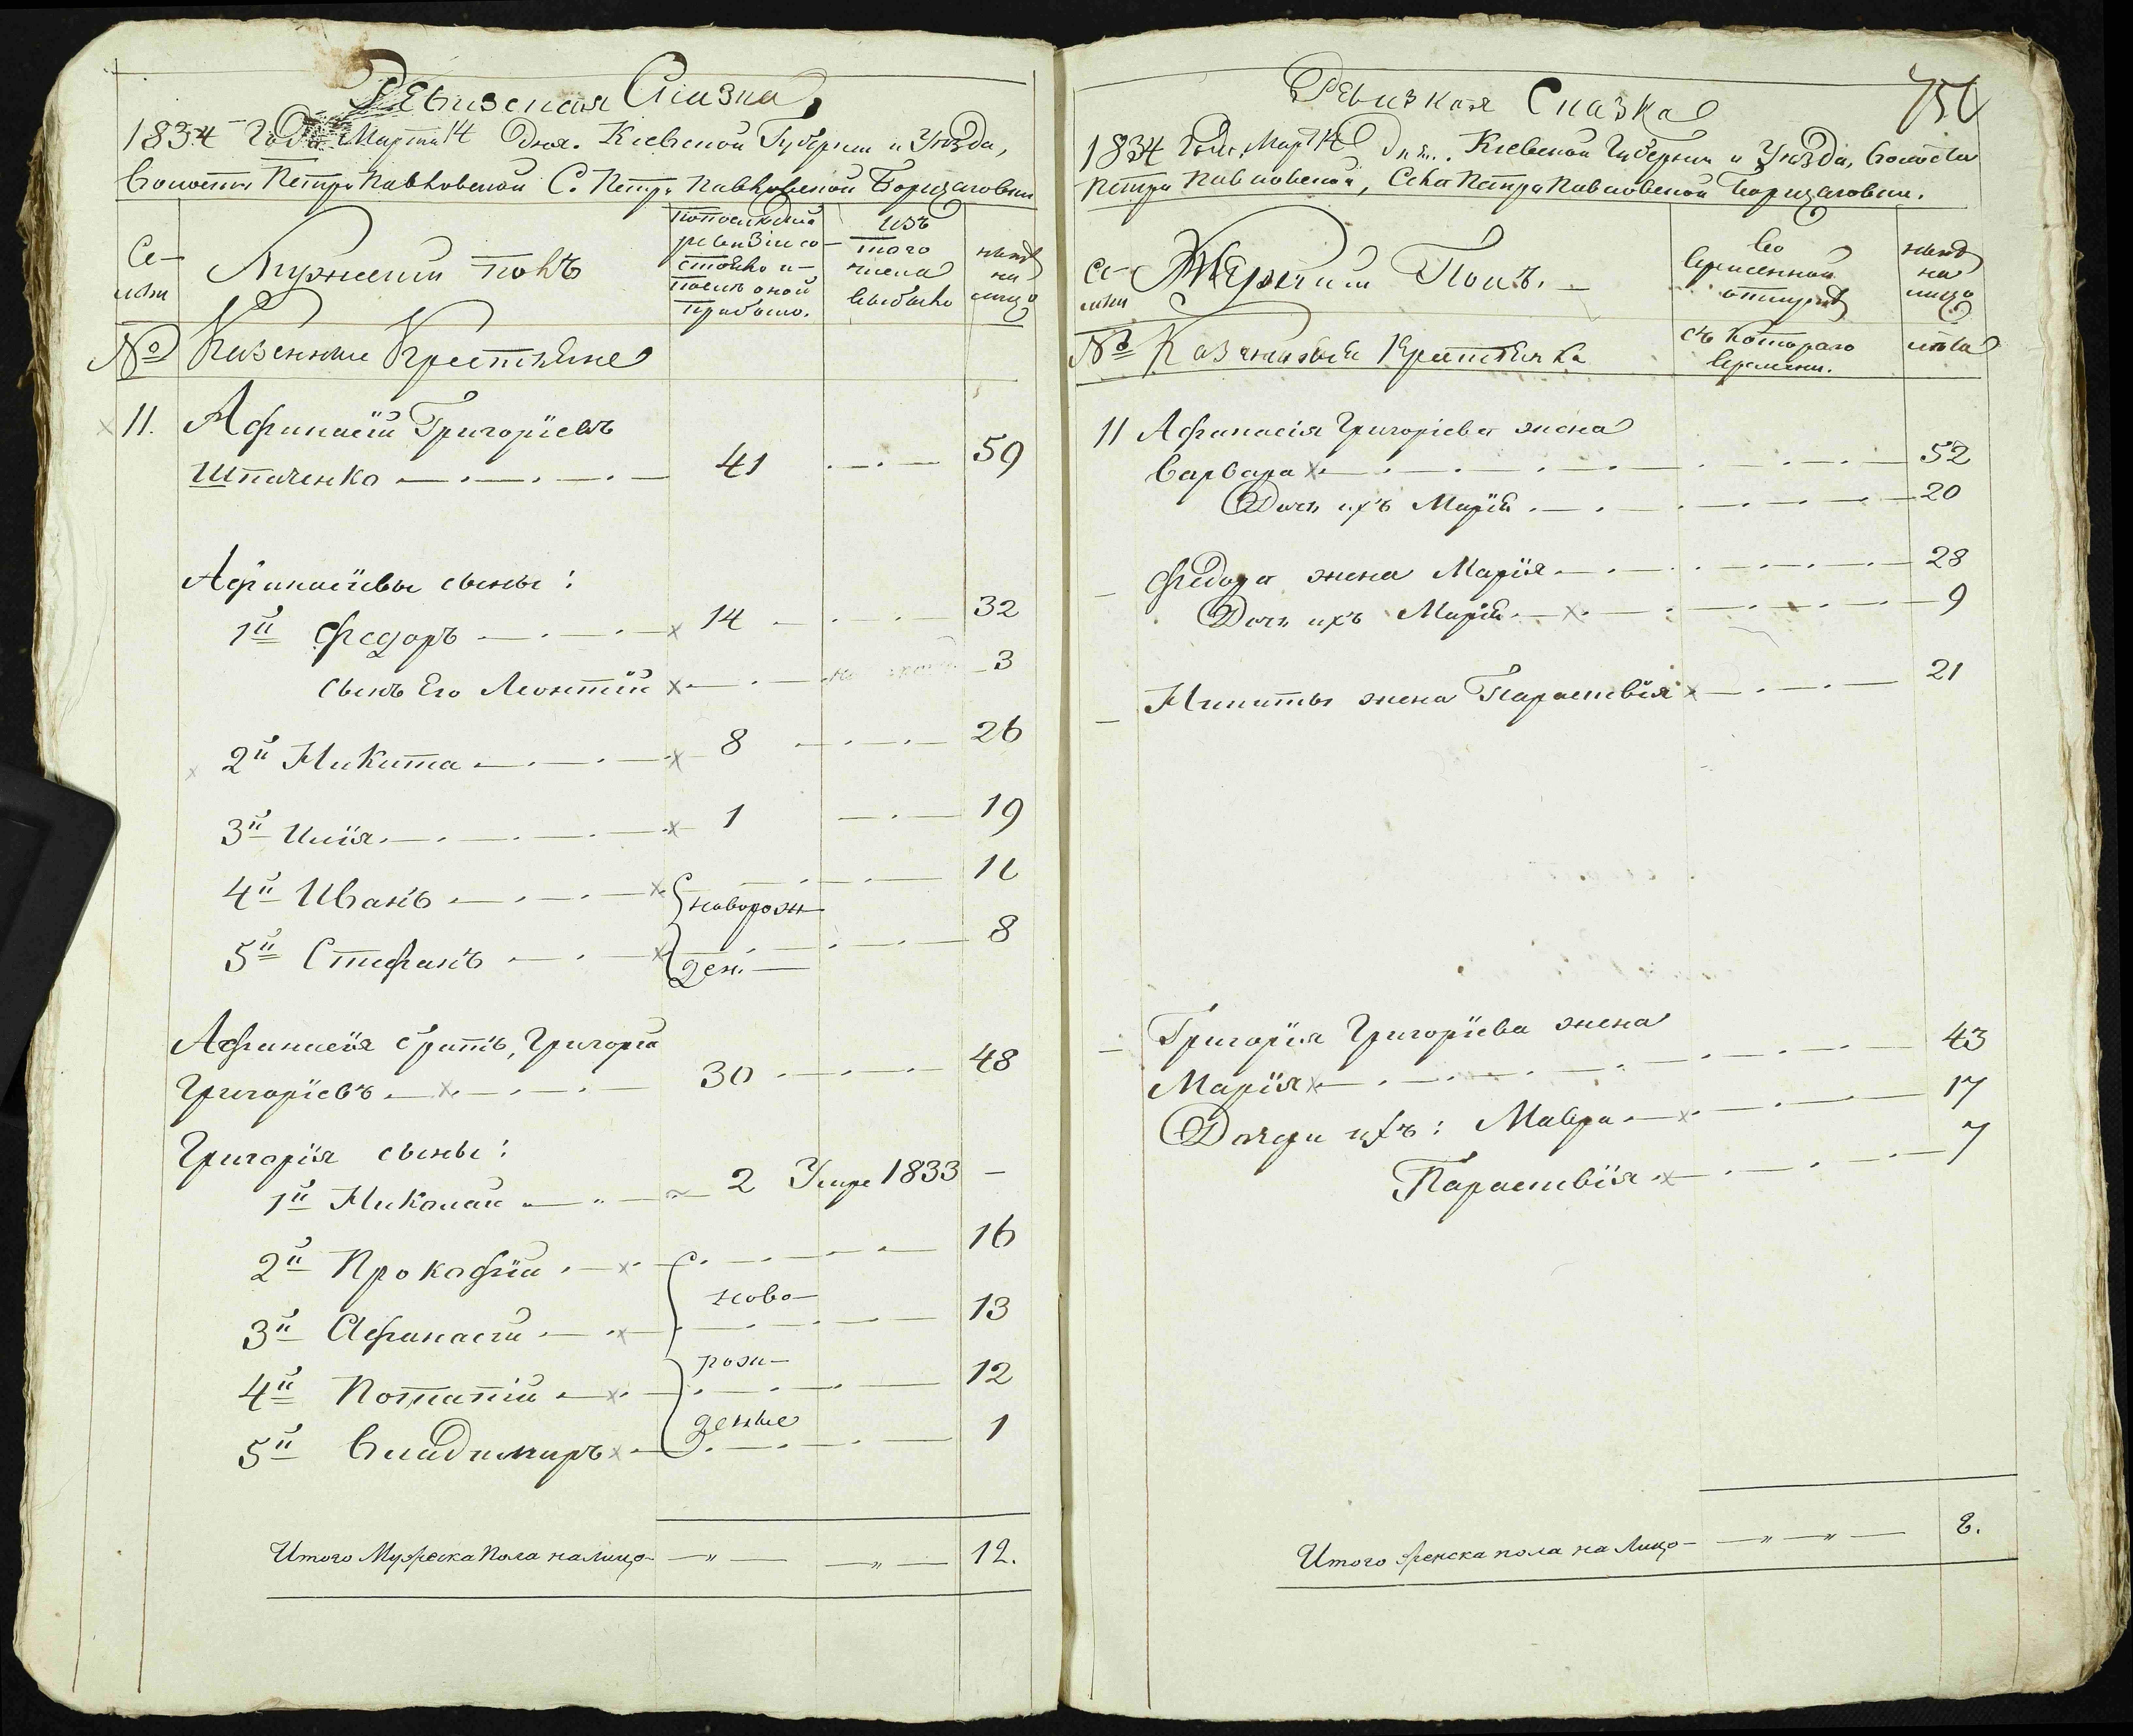 Ревизская Сказка
1834 года Марта 14 Дня. Киевской Губернии и Уѣзда,
Волости Петро Павловской С. Петро Павловской Борщаговки
Се-
мьи
Мужеский полъ
по последней
ревизіи со-
стояло и
послѣ оной
прибыло.
изъ
того
числа
выбыло
нынѣ
на
лицо
№
Казенные Крестьяне
11. Афанасій Григоріевъ
Штаченко 41 59
Афанасіевы сыны:
1й Федоръ 14 32
сынъ Его Леонтій 3
2й Никита 8 26
3й Илія 1 19
4й Иванъ 11
новорож-
5й Стефанъ 8
ден.
Афанасія братъ, Григорій
Григоріевъ 30 48
Григорія сыны:
1й Николай 2 Умре 1833
2й Прокофій 16
ново-
3й Афанасій 13
рож-
4й Потапій 12
денные
5й Владимиръ 1
Итого Мужеска пола налицо 12.
Ревизкая Сказка
1834 года Март 14 Дня. Киевской Губернии и Уѣзда, Волости
Петро Павловской, Села Петро Павловской Борщаговки.
Се-
мьи
Женский Полъ.
во
временной
отлучкѣ
нынѣ
на
лицо
№
съ котораго
времени.
лѣта
11 Афанасія Григоріева жена
Варвара 52
Дочь ихъ Марія 20
Федора жена Марія 28
Дочь ихъ Марія 9
Никиты жена Параскевія 21
Григорія Григоріева жена
Марія 43
Дочери ихъ: Мавра 17
Параскевія 7
Итого женска пола на лицо 8.